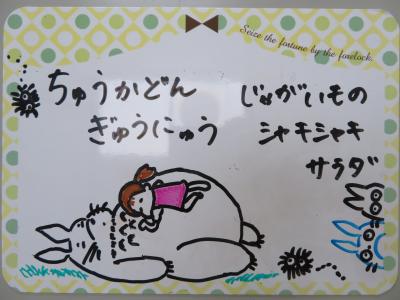 Seize the fortune by the forelock.
ちゅうかどん
ぎゅうにゅう
じゃがいもの
シャキシャキ
サラダ